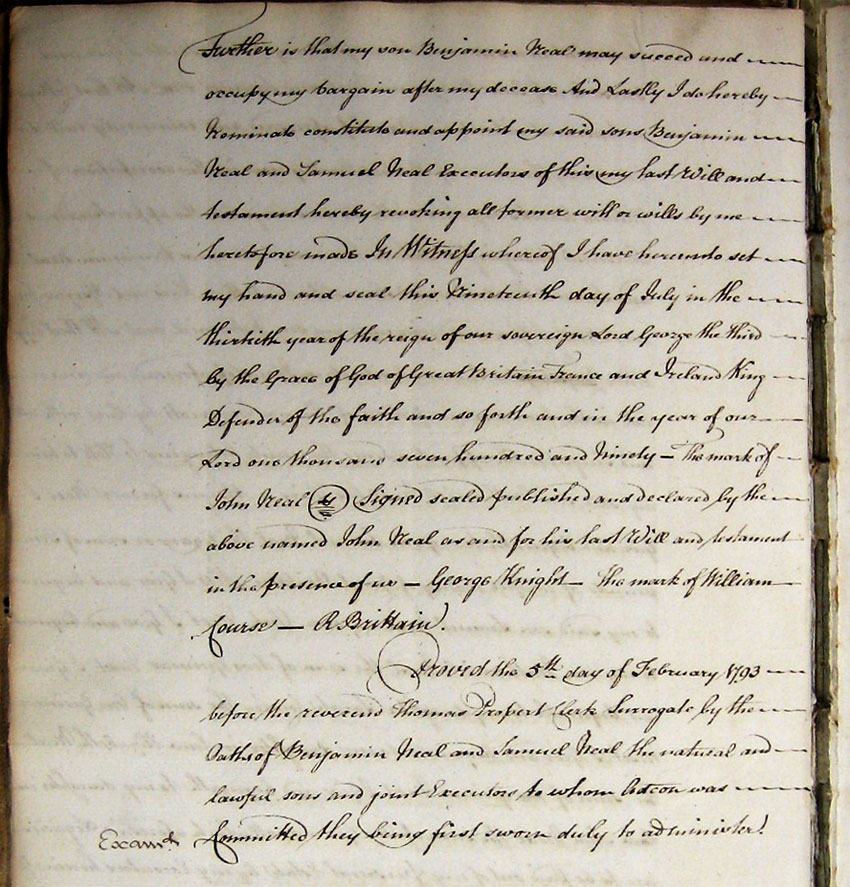 Further is that my son Benjamin Neal may succeed and
occupy my bargain after my decease And Lastly I do hereby
Nominate constitute and appoint my said sons Benjamin
Neal and Samuel Neal Executors of this my last Will and
testament hereby revoking all former will or wills by me
heretofore made In Witness whereof I have hereunto set
my hand and seal this Nineteenth day of July in the
thirtieth year of the reign of our sovereign Lord George the third
by the Grace of God of Great Britain France and Ireland King
Defender of the faith and so forth and in the year of our
Lord one thousand seven hundred and Ninety — The mark of
John Neal Signed sealed published and declared by the
above named John Neal as and for his last Will and testament
in the presence of us — George Knight — The mark of William
Course — R Brittain.
Proved the 5th day of February 1793
before the reverend Thomas Propert Clerk Surrogate by the
Oaths of Benjamin Neal and Samuel Neal the natural and
lawful sons and joint Executors to whom Adcon was
Exam'd Committed they being first sworn duly to administer.